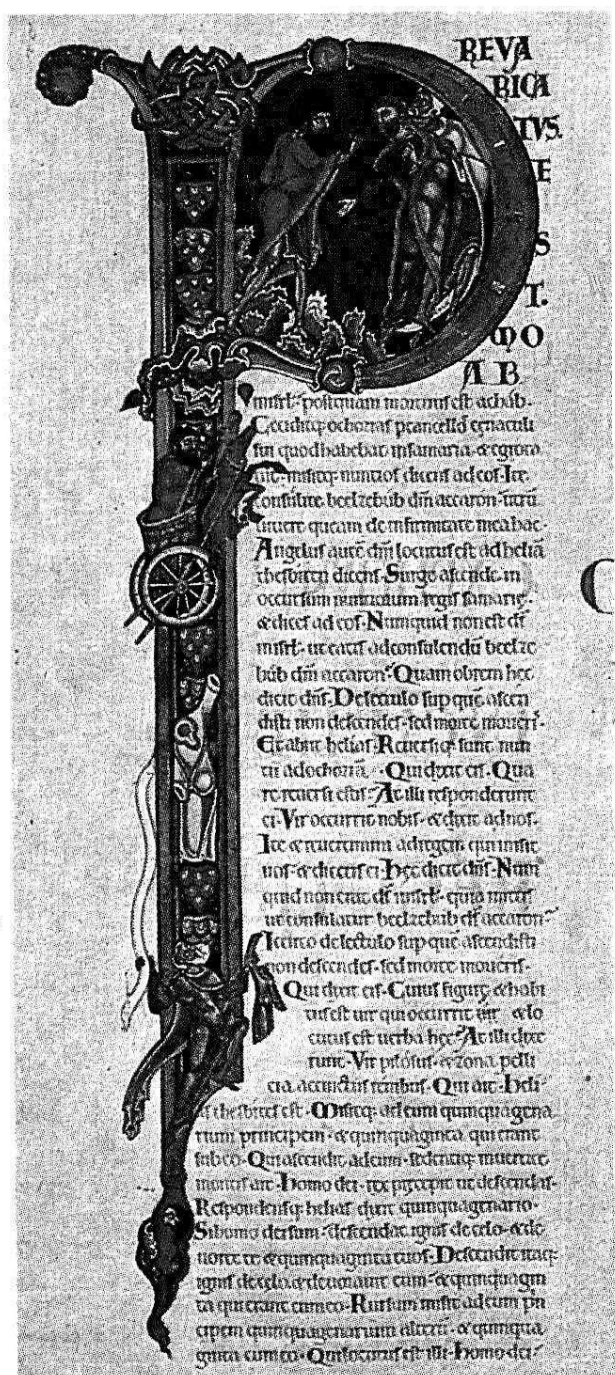 PREVA
RICA
TVS.
E
S
T.
MO
AB
in isrł· postquam mortuus est achab·
Ceciditq; ochozias p cancellos cenaculi
sui quod habebat in samaria· & egrota
uit· misitq; nuntios dicens ad eos· Ite
consulite beelzebub dm̄ accaron· utrū
uiuere queam de infirmitate mea hac·
Angelus autē dn̄i locutus est ad heliā
thesbiten dicens· Surge ascende in
occursum nuntiorum regis samarię·
& dices ad eos· Numquid non est ds̄
in isrł· ut eatis ad consulendū beelze
bub dm̄ accaron· Quam obrem hec
dicit dn̄s· De lectulo sup quē ascen
disti non descendes· sed morte morieris·
Et abiit helias· Reuersiq; sunt nun
tii ad ochoziā· Qui dixit eis· Qua
re reuersi estis· At illi responderunt
ei· Vir occurrit nobis· & dixit ad nos·
Ite & reuertimini ad regem qui misit
uos· & dicetis ei· Hęc dicit dn̄s· Num
quid non erat ds̄ in isrł· quia mittis
ut consulatur beelzebub ds̄ accaron·
Iccirco de lectulo sup quē ascendisti
non descendes· sed morte morieris·
Qui dixit eis· Cuius figurę & habi
tus est uir qui occurrit uobis & lo
cutus est uerba hęc· At illi dixe
runt· Vir pilosus· & zona pelli
cia accinctus renibus· Qui ait· Heli
as thesbites est· Misitq; ad eum quinquagena
rium principem· & quinquaginta qui erant
sub eo· Qui ascendit ad eum· sedentiq; in uertice
montis ait· Homo dei· rex pręcepit ut descendas·
Respondensq; helias dixit quinquagenario·
Si homo dei sum· descendat ignis de celo· & de
uoret te & quinquaginta tuos· Descendit itaq;
ignis de celo· & deuorauit eum· & quinquagin
ta qui erant cum eo· Rursum misit ad eum prin
cipem quinquagenarium alterū· & quinqua
ginta cum eo· Qui locutus est illi· Homo dei·